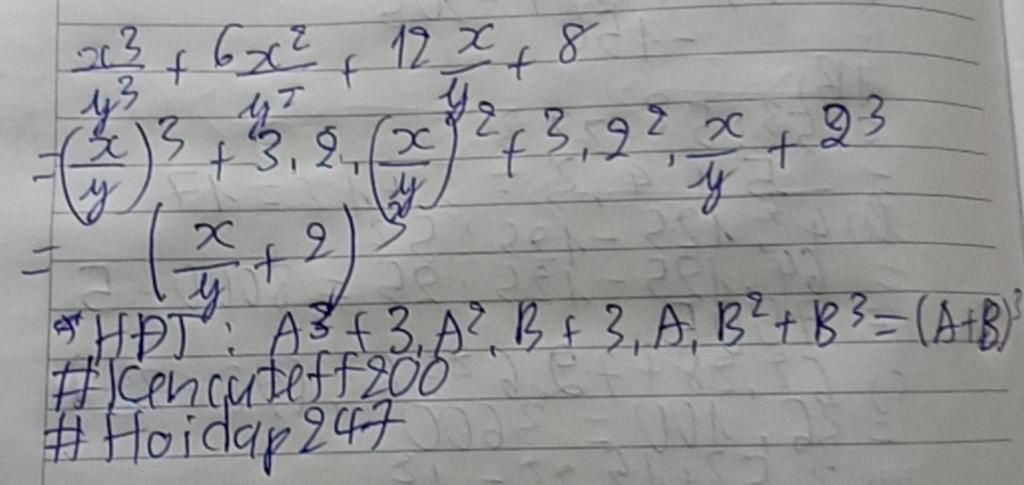 x³/y³ + 6x²/y² + 12 x/y + 8
= (x/y)³ + 3.2.(x/y)² + 3.2².x/y + 2³
= (x/y + 2)³
* HĐT: A³ + 3.A².B + 3.A.B² + B³ = (A+B)³
#Kencuteff200
#Hoidap247